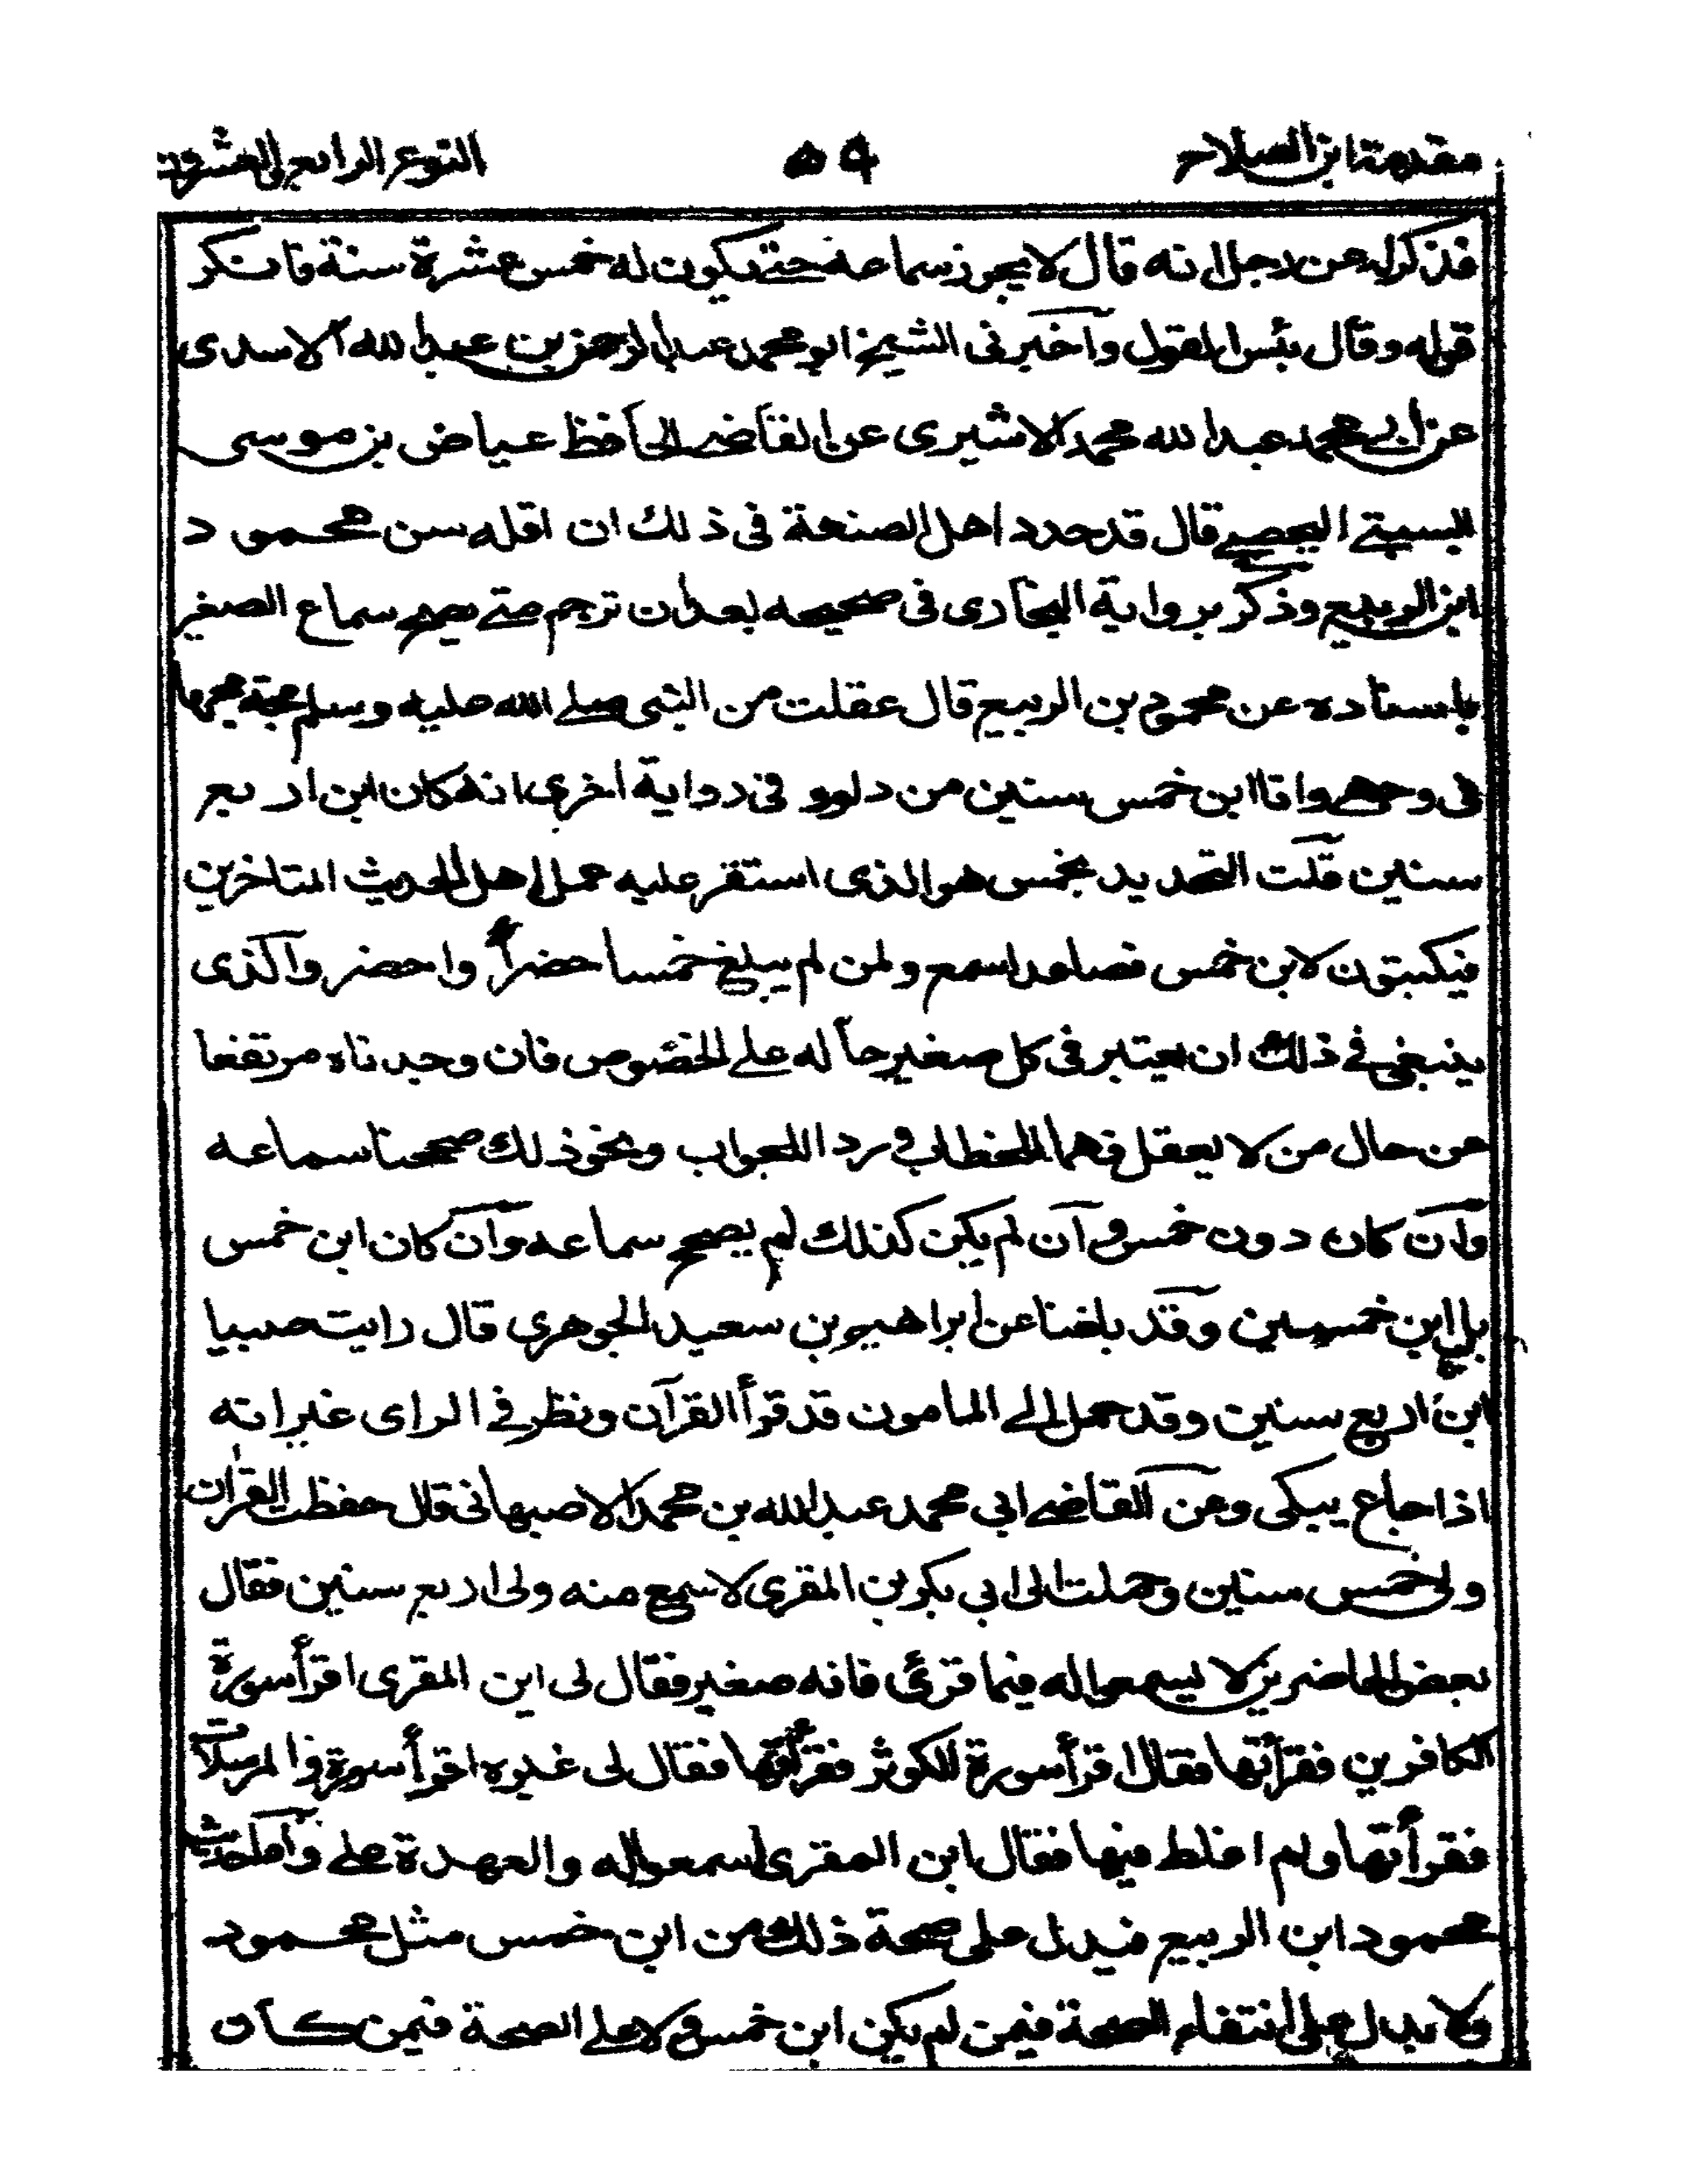 مقدمة ابن الصلاح ٥٩ النوع الرابع والعشرون
فذكر له عن رجل انه قال لا يجوز سماعه حتى يكون له خمس عشرة سنة فانكر
قوله وقال بئس القول وآخبرنى الشيخ ابو محمد عبد الرحمن بن عبد الله الاسدى
عن ابي محمد عبد الله محمد الاشيرى عن القاضى الحافظ عياض بن موسى
السبتى اليحصبى قال قد حدد اهل الصنعة فى ذلك ان اقله سن محمود
ابن الربيع وذكر برواية البخارى فى صحيحه بعد ان ترجم متى يصح سماع الصغير
باسناده عن محمود بن الربيع قال عقلت من النبى صلى الله عليه وسلم مجة مجها
فى وجهى وانا ابن خمس سنين من دلوو فى رواية اخرى انه كان ابن اربع
سنين قلت التحديد بخمس هو الذى استقر عليه عمل اهل الحديث المتاخرين
فيكتبون لابن خمس فصاعدا سمع ولمن لم يبلغ خمسا حضرأ واحضر والذى
ينبغى فى ذلك ان يعتبر فى كل صغير حاله على الخصوص فان وجدناه مرتفعا
عن حال من لا يعقل فهما للخطاب و رد اللجواب ونحو ذلك صححنا سماعه
وآن كان دون خمس وآن لم يكن كذلك لم يصح سماعه وآن كان ابن خمس
بل ابن خمسين وقد بلغنا عن ابراهيم بن سعيد الجوهري قال رايت صبيا
ابن اربع سنين وقد حمل الى المامون قد قرأ القرآن ونظر فى الراى غير انه
اذا جاع يبكى وعن القاضى ابي محمد عبد الله بن محمد الاصبهانى قال حفظت القرآن
ولى خمس سنين وحملت الى ابي بكر بن المقري لاسمع منه ولى اربع سنين فقال
بعض الحاضرين لا يسمعوا له فيما قرئ فانه صغير فقال لى ابن المقرى اقرأ سورة
الكافرين فقرأتها فقال اقرأ سورة الكوثر فقرأتها فقال لى غيره اقرأ سورة والمرسلات
فقرأتها ولم اغلط فيها فقال ابن المقرى اسمعوا له والعهدة على وآما حديث
محمود ابن الربيع فيدل على صحة ذلك من ابن خمس مثل محمود
ولا يدل على انتفاء الصحة فيمن لم يكن ابن خمس و لا على الصحة فيمن كان